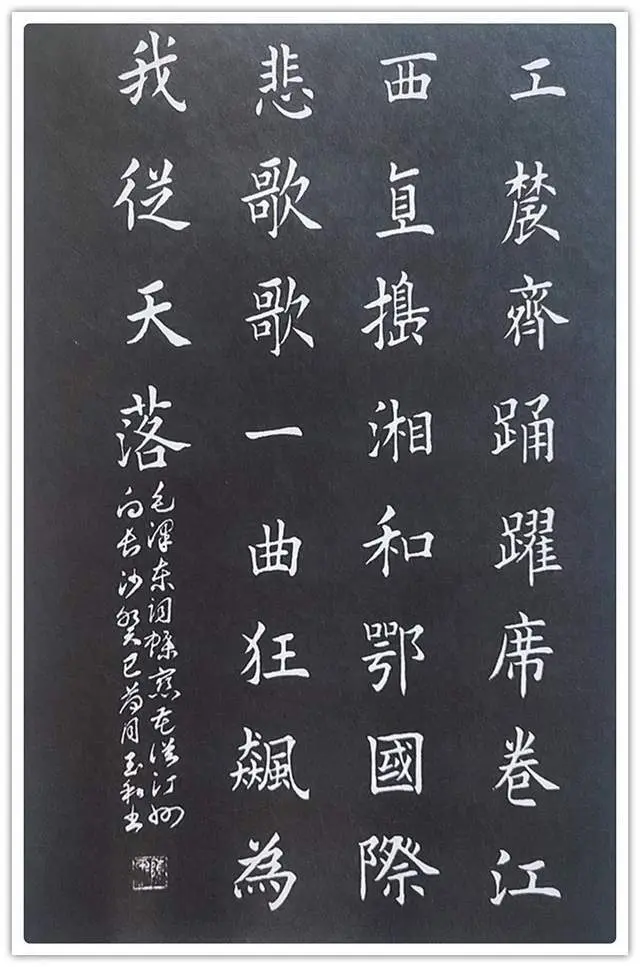 工辳齊踊躍席卷江
西直搗湘和鄂國際
悲歌歌一曲狂飆為
我從天落
毛澤東詞蝶戀花從汀州
向長沙癸巳荷月玉和書